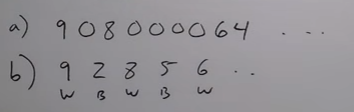 a) 908000064 ...
b) 9 2 8 5 6 ..
W B W B W